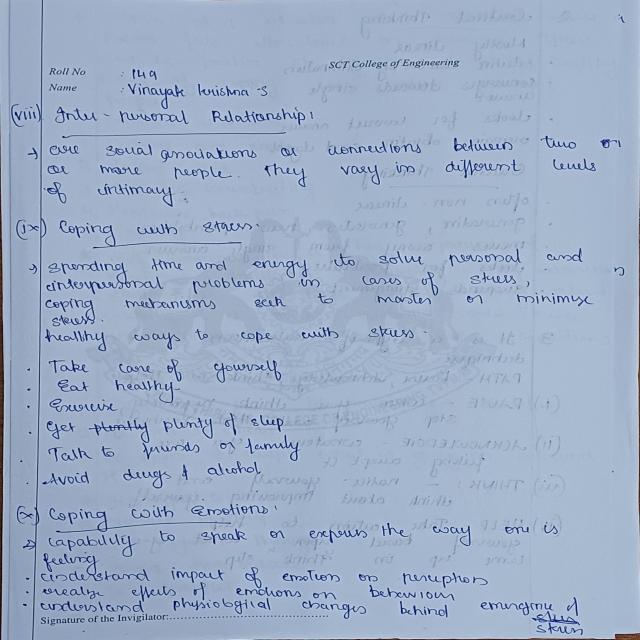 SCT College of Engineering
Roll No : 149
Name : Vinayak Krishna S
(viii) Inter-Personal Relationship:
→ are social associations or connections between two or
or more people. They vary in different levels
of intimacy.
(ix) Coping with stress.
→ spending time and energy to solve personal and
interpersonal problems in cases of stress,
coping mechanisms seek to master or minimize
stress.
healthy ways to cope with stress.
• Take care of yourself
• Eat healthy
• Exercise
• Get plenty of sleep
• Talk to friends or family
• Avoid drugs & alcohol
(x) Coping with Emotions:
→ Capability to speak or express the way one is
feeling
• understand impact of emotion on perception
• realize effects of emotions on behaviour
• understand physiological changes behind emergence of
stress
Signature of the Invigilator: